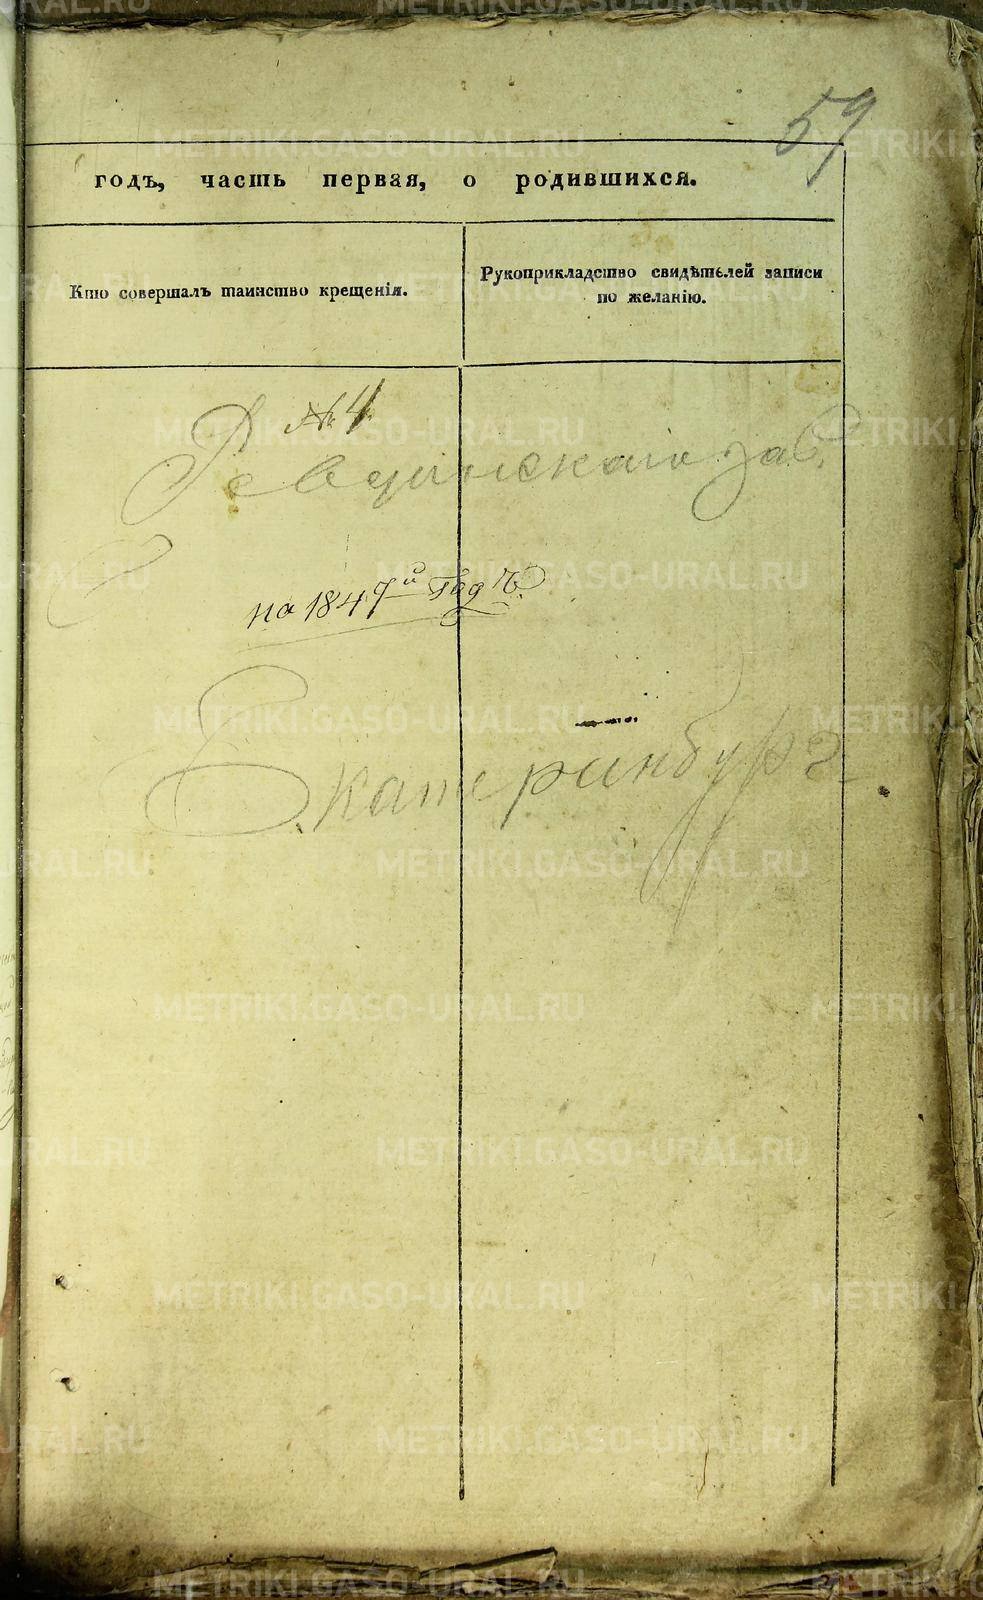 59
годъ, часть первая, о родившихся.
Кто совершалъ таинство крещенія.
Рукоприкладство свидѣтелей записи
по желанію.
№ 4.
Ревдинскаго зав.
на 1847й Годъ
Екатеринбургъ
METRIKI.GASO-URAL.RU